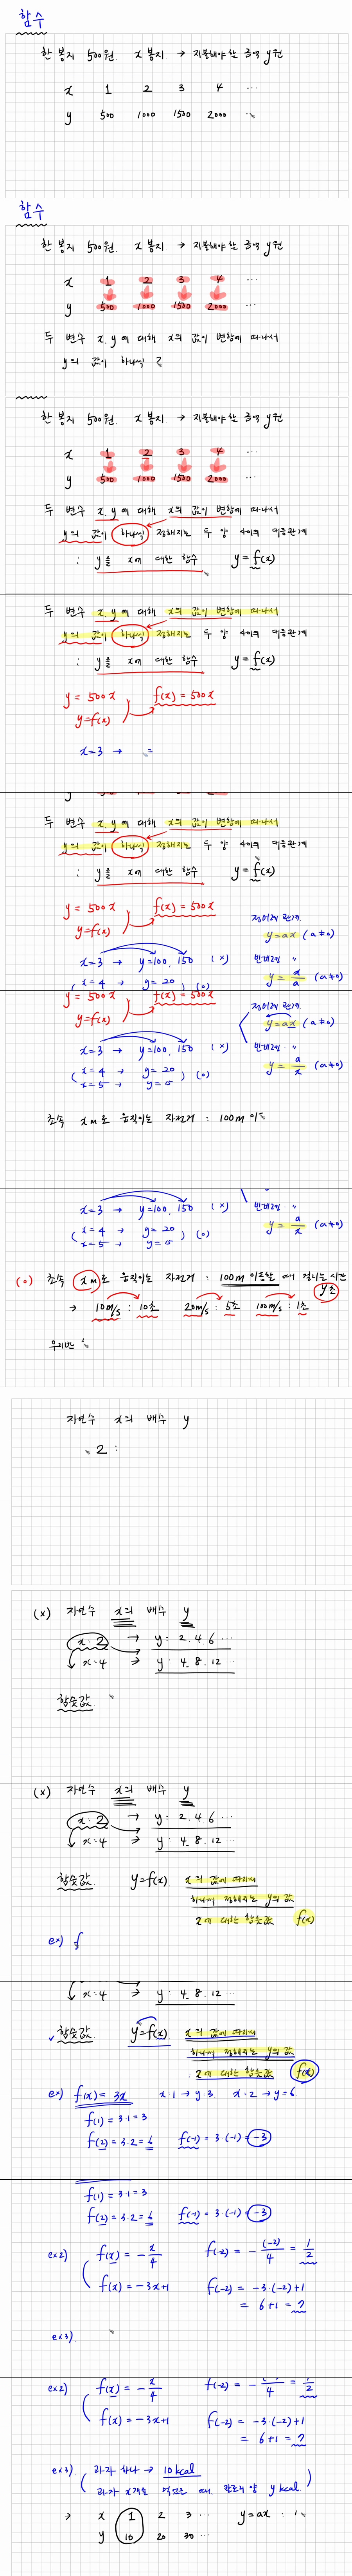 함수
한 봉지 500원. x 봉지 → 지불해야 할 금액 y원
x 1 2 3 4 ⋯
y 500 1000 1500 2000
함수
한 봉지 500원. x 봉지 → 지불해야 할 금액 y원
x 1 2 3 4 ⋯
y 500 1000 1500 2000
두 변수 x, y에 대해 x의 값이 변함에 따라서
y의 값이 하나씩
한 봉지 500원. x 봉지 → 지불해야 할 금액 y원
x 1 2 3 4 ⋯
y 500 1000 1500 2000
두 변수 x, y에 대해 x의 값이 변함에 따라서
y의 값이 하나씩 정해지는 두 양 사이의 대응관계
: y를 x에 대한 함수 y = f(x)
두 변수 x, y에 대해 x의 값이 변함에 따라서
y의 값이 하나씩 정해지는 두 양 사이의 대응관계
: y를 x에 대한 함수 y = f(x)
y = 500x f(x) = 500x
y = f(x)
x = 3 → =
두 변수 x, y에 대해 x의 값이 변함에 따라서
y의 값이 하나씩 정해지는 두 양 사이의 대응관계
: y를 x에 대한 함수 y = f(x)
y = 500x f(x) = 500x 정비례 관계
y = f(x) y = ax (a≠0)
x = 3 → y = 100, 150 (×) 반비례 〃
( x = 4 → y = 20 ) (o) y = x/a (a≠0)
y = 500x f(x) = 500x 정비례 관계
y = f(x) y = ax (a≠0)
x = 3 → y = 100, 150 (×) 반비례 〃
( x = 4 → y = 20 ) (o) y = a/x (a≠0)
x = 5 → y = 0
초속 x m로 움직이는 자전거 : 100m 이동
x = 3 → y = 100, 150 (×) 반비례 〃
( x = 4 → y = 20 ) (o) y = a/x (a≠0)
x = 5 → y = 0
(o) 초속 x m로 움직이는 자전거 : 100m 이동할 때 걸리는 시간 y초
→ 10m/s : 10초 20m/s : 5초 100m/s : 1초
우리반
자연수 x의 배수 y
2 :
(×) 자연수 x의 배수 y
x : 2 → y : 2. 4. 6 ⋯
x = 4 → y : 4. 8. 12 ⋯
함숫값.
(×) 자연수 x의 배수 y
x : 2 → y : 2. 4. 6 ⋯
x = 4 → y : 4. 8. 12 ⋯
함숫값 y = f(x). x의 값에 따라서
하나씩 정해지는 y의 값
x에 대한 함숫값 f(x)
ex) f
x = 4 → y : 4. 8. 12 ⋯
함숫값 y = f(x). x의 값에 따라서
하나씩 정해지는 y의 값
: x에 대한 함숫값 f(x)
ex) f(x) = 3x x : 1 → y : 3 x : 2 → y = 6
f(1) = 3·1 = 3
f(2) = 3·2 = 6 f(-1) = 3·(-1) = -3
f(1) = 3·1 = 3
f(2) = 3·2 = 6 f(-1) = 3·(-1) = -3
ex2) f(x) = -x/4 f(-2) = -(-2)/4 = 1/2
f(x) = -3x+1 f(-2) = -3·(-2)+1
= 6+1 = 7
ex3)
ex2) f(x) = -x/4 f(-2) = -(-2)/4 = 1/2
f(x) = -3x+1 f(-2) = -3·(-2)+1
= 6+1 = 7
ex3) ( 과자 하나 → 10 kcal
과자 x개를 먹었을 때. 칼로리 양 y kcal. )
→ x 1 2 3 ⋯ y = ax :
y 10 20 30 ⋯